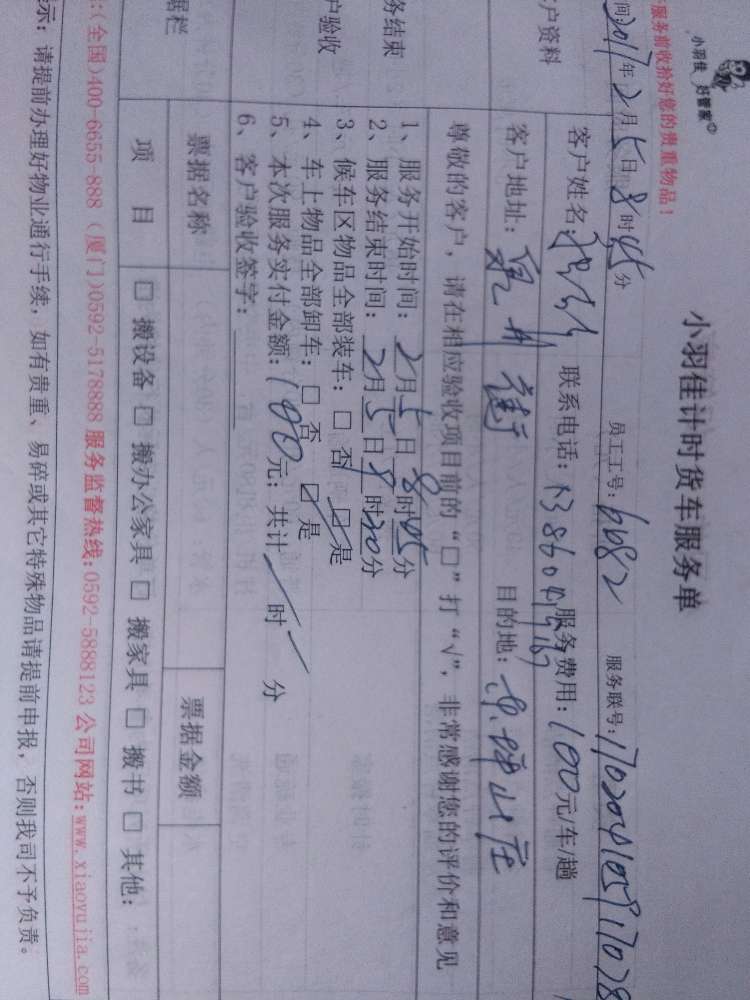 小羽佳 好管家
小羽佳计时货车服务单
服务前收拾好您的贵重物品！
间:2017年2月5日8时45分 员工工号:6682 服务联号:
客户资料
客户姓名: 联系电话: 服务费用:100元/车/趟
客户地址: 目的地:
尊敬的客户，请在相应验收项目前的“□”打“√”，非常感谢您的评价和意见
务结束
户验收
1、服务开始时间:2月5日8时45分
2、服务结束时间:2月5日9时20分
3、候车区物品全部装车:□否 ☑是
4、车上物品全部卸车:□否 ☑是
5、本次服务实付金额:100元;共计/时/分
6、客户验收签字:
据栏
票据名称 票据金额
项目 □搬设备 □搬办公家具 □搬家具 □搬书 □其他:
:(全国)400-6655-888 (厦门)0592-5178888 服务监督热线:0592-5888123 公司网站:www.xiaoyujia.com
示:请提前办理好物业通行手续，如有贵重、易碎或其它特殊物品请提前申报，否则我司不予负责。